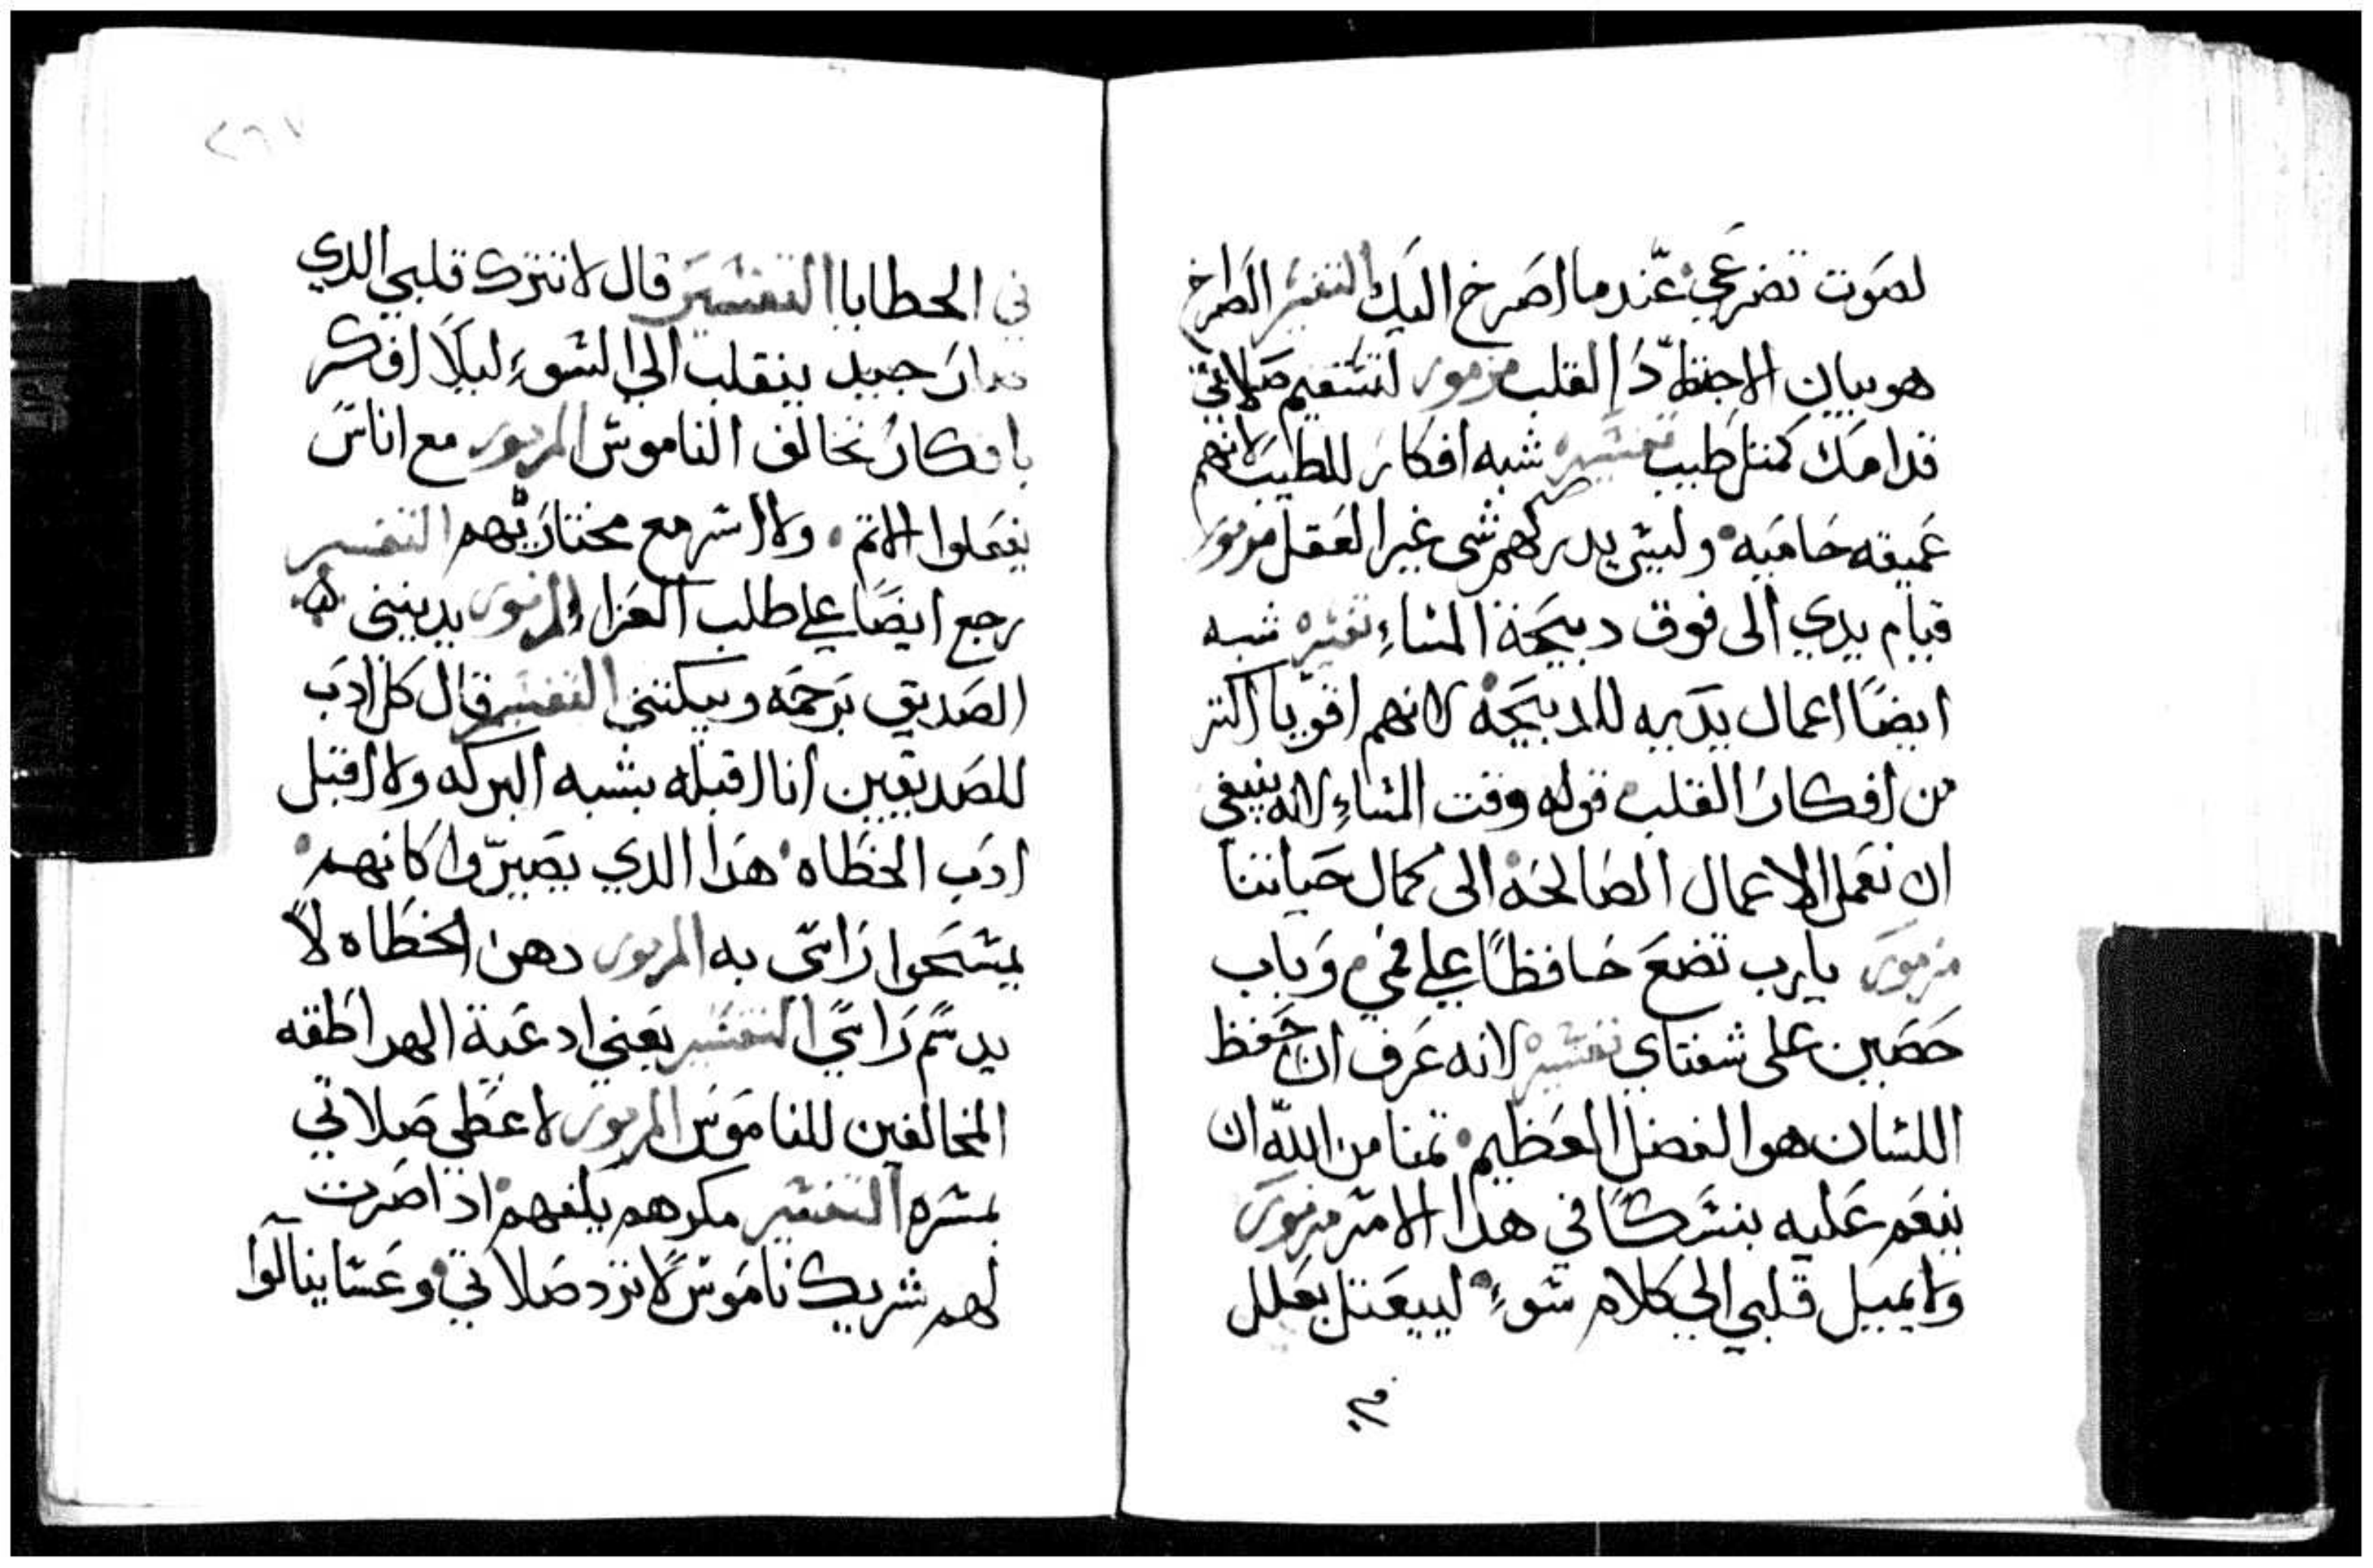 لصوت تضرعي عندما اصرخ اليك التفسير الصراخ
هو بيان الاجتهاد القلب مزمور لتستقيم صلاتي
قدامك كمثل طيب تفسيره شبه افكار للطيب لانهم
عميقه حاميه وليس يدركهم شي غير العقل مزمور
قيام يدي الى فوق دبيحة المساء تفسيره شبه
ايضا اعمال يديه للدبيحة لانهم اقويا اكتر
من افكار القلب قوله وقت المساء لانه ينبغي
ان نعمل الاعمال الصالحة الى كمال حياتنا
مزمور يارب تضع حافظا علي فمي وباب
حصين على شفتاي تفسيره لانه عرف ان حفظ
اللسان هو الفضل العظيم تمنا من الله ان
ينعم عليه بنسكا في هدا الامر مزمور
ولا يميل قلبي الي كلام سوء ليعتل بعلل
في
٢٦٧
في الخطايا التفسير قال لا تترك قلبي الدي
صار جيد ينقلب الي السوء ليلا افكر
بافكار تخالف الناموس المزمور مع اناس
يعملوا الاتم ولا اشر مع مختاريهم التفسير
رجع ايضا علي طلب العزاء المزمور يدينني
الصديق برحمه ويبكتني التفسير قال كل ادب
للصديقين انا اقبله بشبه البركه ولا اقبل
ادب الخطاه هدا الدي يصيروا كانهم
يمسحوا راسي به المزمور دهن الخطاه لا
يدسم راسي التفسير يعني ادعية الهراطقه
المخالفين للناموس المزمور لا عطي صلاتي
بمسره التفسير مكرهم يكفهم ادا صرت
لهم شريك ناموس لا تزد صلاتي وعسا ينالوا